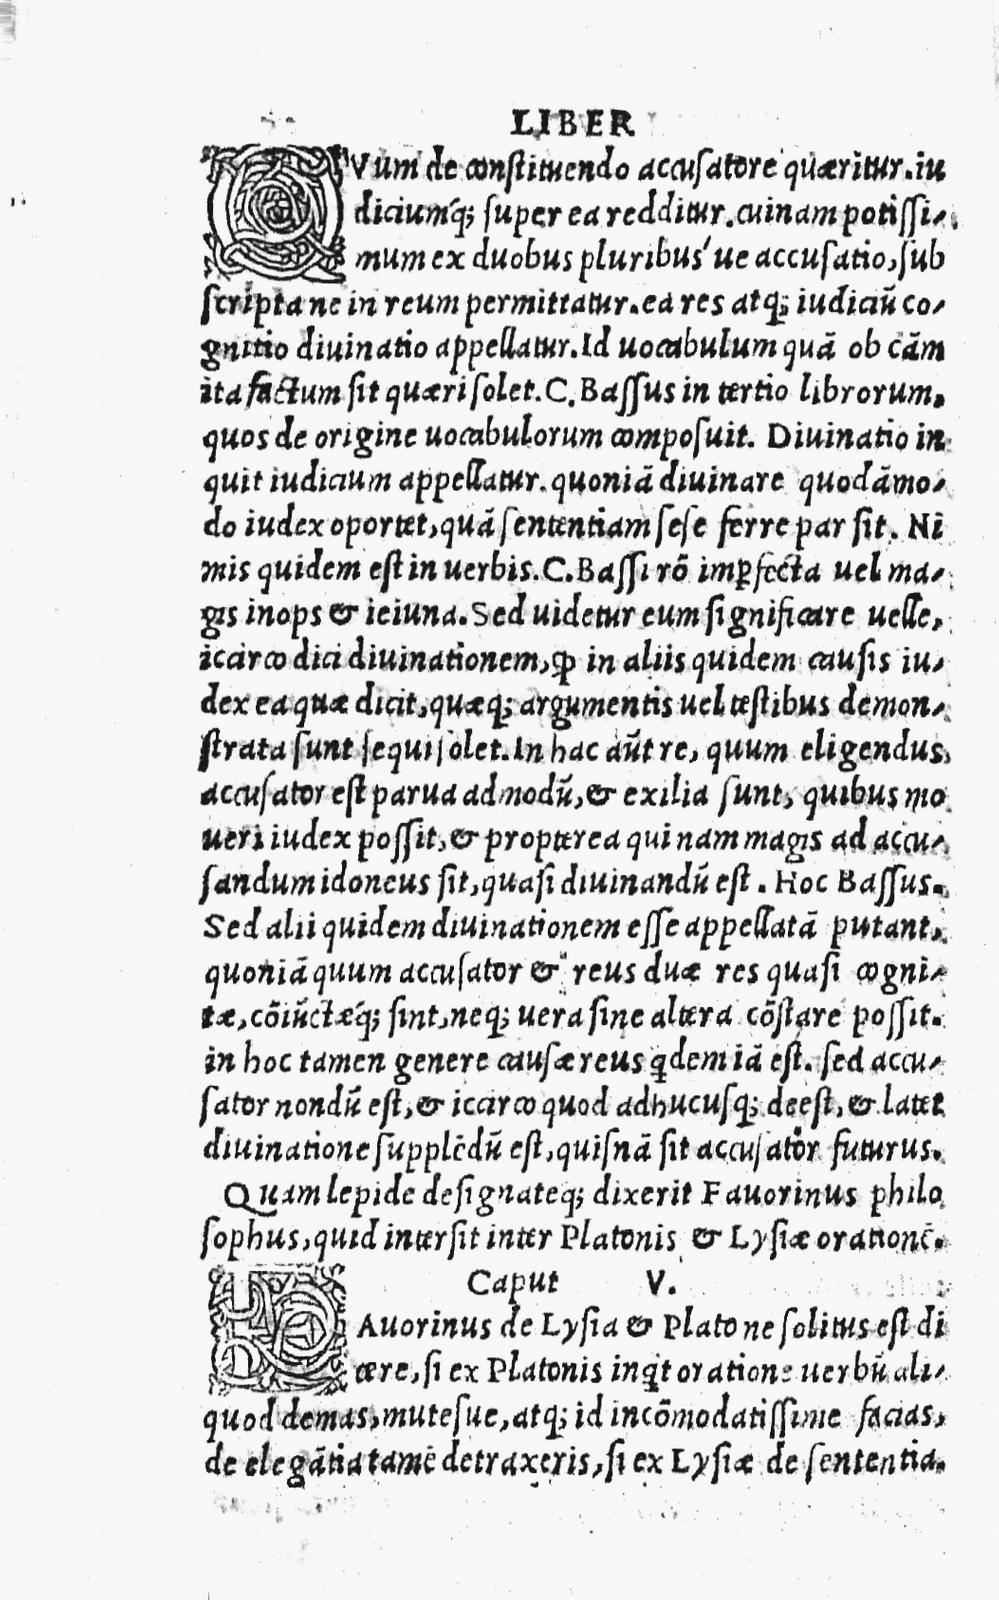 LIBER
QVum de constituendo accusatore quæritur. iu
diciumq́; super ea redditur. cuinam potissi-
mum ex duobus pluribus'ue accusatio, sub
scripta ne in reum permittatur. ea res atq; iudiciū co-
gnitio diuinatio appellatur. Id uocabulum quā ob cām
ita factum sit quæri solet. C. Bassus in tertio librorum.
quos de origine uocabulorum composuit. Diuinatio in
quit iudicium appellatur. quoniā diuinare quodāmo-
do iudex oportet, quā sententiam sese ferre par sit. Ni
mis quidem est in uerbis. C. Bassi rō imꝑfecta uel ma-
gis inops & ieiuna. Sed uidetur eum significare uelle,
iccirco dici diuinationem, ꝙ in aliis quidem causis iu-
dex ea quæ dicit, quæq; argumentis uel testibus demon-
strata sunt sequi solet. In hac aūt re, quum eligendus,
accusator est parua admodū, & exilia sunt, quibus mo
ueri iudex possit, & propterea qui nam magis ad accu-
sandum idoneus sit, quasi diuinandū est. Hoc Bassus.
Sed alii quidem diuinationem esse appellatā putant,
quoniā quum accusator & reus duæ res quasi cogni-
tæ, cōiūctæq́; sint, neq; uera sine altera cōstare possit.
in hoc tamen genere causæ reus qdem iā est. sed accu-
sator nondū est, & iccirco quod adhucusq; deest, & latet
diuinatione supplēdū est, quisnā sit accusator futurus.
Quam lepide designateq; dixerit Fauorinus philo
sophus, quid intersit inter Platonis & Lysiæ orationē.
Caput V.
FAuorinus de Lysia & Platone solitus est di
cere, si ex Platonis inqt oratione uerbū ali-
quod demas, mutesue, atq; id incōmodatissime facias,
de elegātia tamē detraxeris, si ex Lysiæ de sententia.